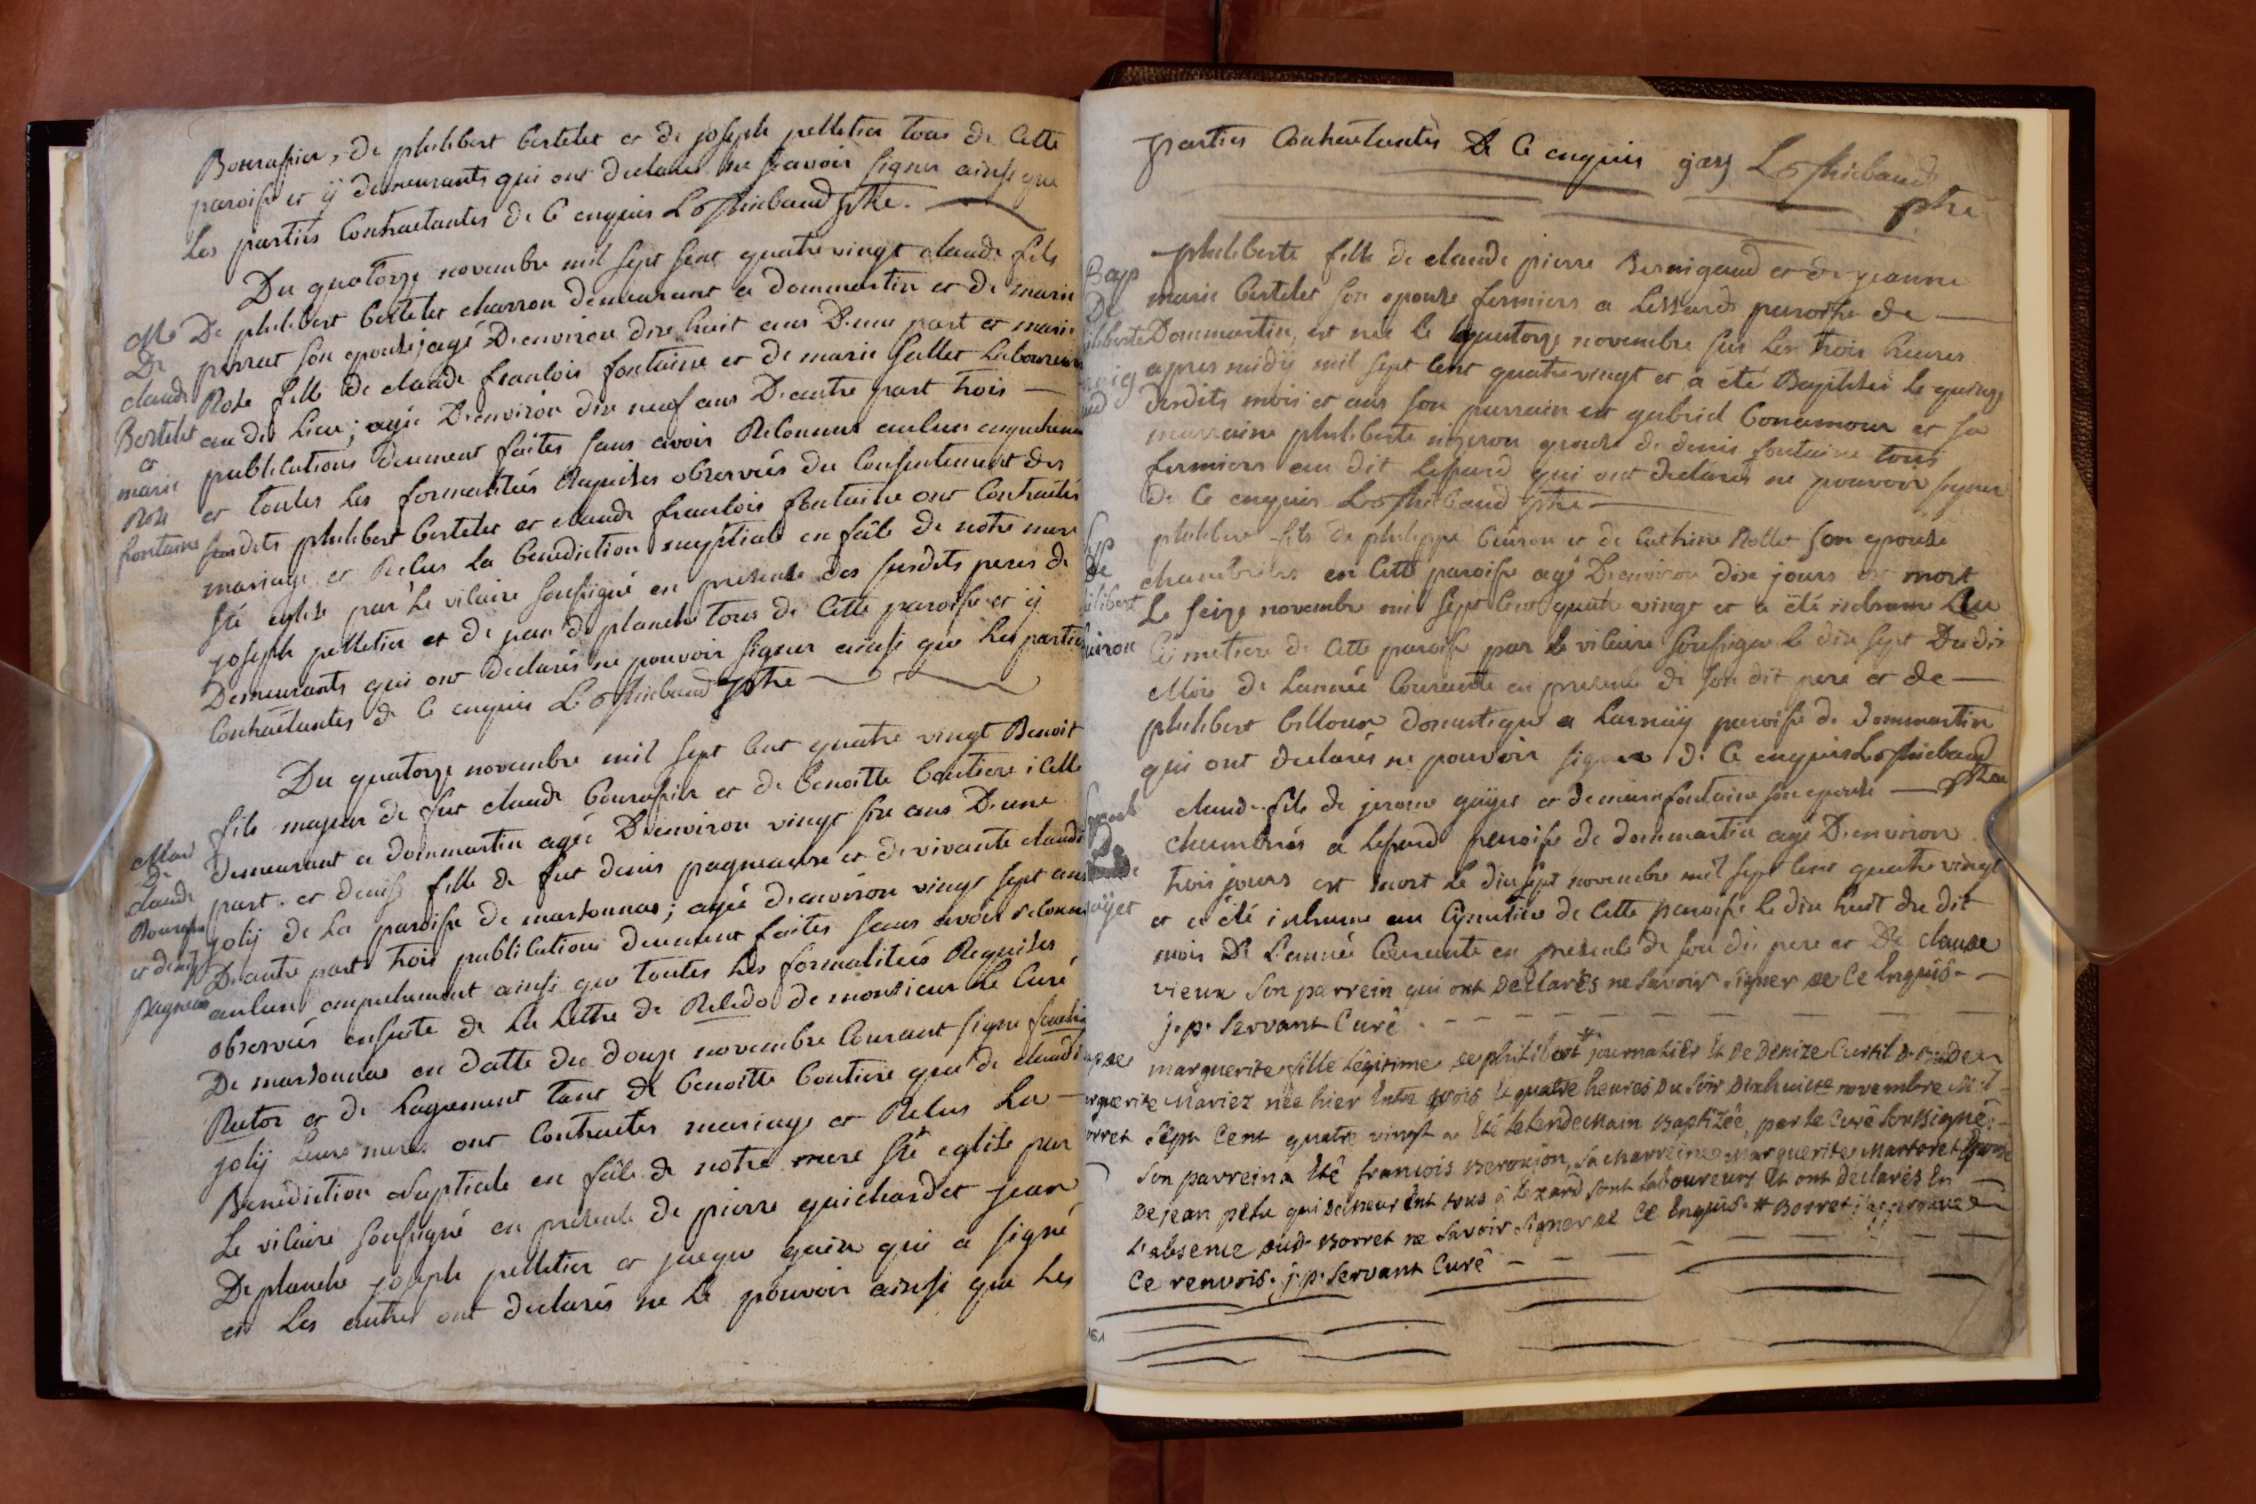 Bourassier, de philibert bertelet et de joseph pelletier tous de Cette
paroisse et y demeurants qui ont declarés ne scavoir signer ainsi que
les parties Contractantes de Ce enquis Lothiebaud ptre.
Du quatorze novembre mil sept sent quatre vingt claude fils
De philibert bertelet charron demeurant a dommartin et de marie
perrat son epouse; agé D'environ dixe huit ans D'une part et marie
Rose fille de claude francois fontaine et de marie Gallet Laboureurs
au dit Lieu; agée D'environ dix neuf ans D'autre part trois
publications deument faites sans avoir Reconnut aulcun
et toutes les formalités Requises observées du Consentement des
susdits philibert bertelet et claude francois fontaine ont Contractés
mariage et Recus La benediction nuptiale en face de notre mere
ste eglise par Le vicaire soussigné en presence des susdits peres de
joseph pelletier et de jean deplanche tous de Cette paroisse et y
Demeurants qui ont declarés ne pouvoir signer ainsi que Les parties
Contractantes de Ce enquis Lothiebaud ptre
M
De
claude
Bertelet
et
marie
Rose
fontaine
Du quatorze novembre mil sept Cent quatre vingt Benoit
fils majeur de fut claude bourassier et de benoitte boutiere icelle
demeurant a dommartin agée D'environ vingt six ans D'une
part. et denise fille de fut denis pagneause et de vivante claude
joly de La paroisse de marsonnas; agée d'environ vingt sept ans
D'autre part trois publications deument faites sans avoir reconnu
aulcun empechement ainsi que toutes Les formalités Requises
observés ensuite de La Lettre de Recedo de monsieur Le Curé
De marsonnas en datte du douze novembre Courant signe
Rector et de Lagrement tant de benoitte boutiere que de claude
joly Leurs meres ont Contractés mariage et Recus La
Benediction Nuptiale en face de notre mere Ste eglise par
Le vicaire soussigné en presence de pierre guichardet jean
Deplanche joseph pelletier et jaeque guin qui a signé
et Les autres ont declarés ne Le pouvoir ainsi que Les
Mar
De
claude
et denise
parties Contractantes De Ce enquis Lothiebaud
ptre
philiberte fille de claude pierre Bernigaud et de jeanne
marie bertelet son epouse fermiers a Lessard paroisse de
Dommartin, est née Le quatorze novembre sur Les trois heures
apres midy mil sept Cent quatre vingt et a été Baptisée Le quinze
desdits mois et ans son parrain est gabriel bonamour et sa
marraine philiberte nizeron epouse de denis fontaine tous
fermiers au dit Lessard qui ont declarés ne pouvoir signer
de Ce enquis Lothiebaud ptre
Bap
De
philibert fils de philippe Guiron et de Cathrine Rollet son epouse
chambrier en Cette paroisse agé D'environ dix jours est mort
Le seize novembre mil sept Cent quatre vingt et a été inhume Au
Cimetiere de Cette paroisse par Le vicaire soussigné Le dix sept Dudit
Mois de Lannée Courante en presence de son dit pere et de
philibert billoux domestique a Larnay paroisse de dommartin
qui ont declarés ne pouvoir signer de Ce enquis Lothiebaud
ptre
De
claude fils de jerome gayet et de marie fontaine son epouse
chambriés a Lessard paroisse de dommartin agé D'environ
trois jours est mort Le dix sept novembre mil sept Cent quatre vingt
et a été inhume au Cimetiere de Cette paroisse Le dix huit du dit
mois De L'année Courante en presence de son dit pere et De claude
vieux son parrein qui ont declarés ne savoir signer de ce Enquis.
j. p. Servant Curé.
marguerite fille Légitime de philibert * journalier et de Denize Curtil
Mariez née hier Entre trois et quatre heures du soir Dixhuitte novembre Mil
Sept Cent quatre vingt a Eté le lendemain Baptizée, par le Curé soussigné.
Son parrein a Eté francois Beroujon, sa Marreine Marguerite Martoret Epouse
De jean petu qui Demeurent tous a Lezard sont laboureurs Et ont déclarés En
l'absence dud. Borret ne savoir signer de Ce Enquis. * Borret j'approuve
Ce renvois. j. p. Servant Curé
161